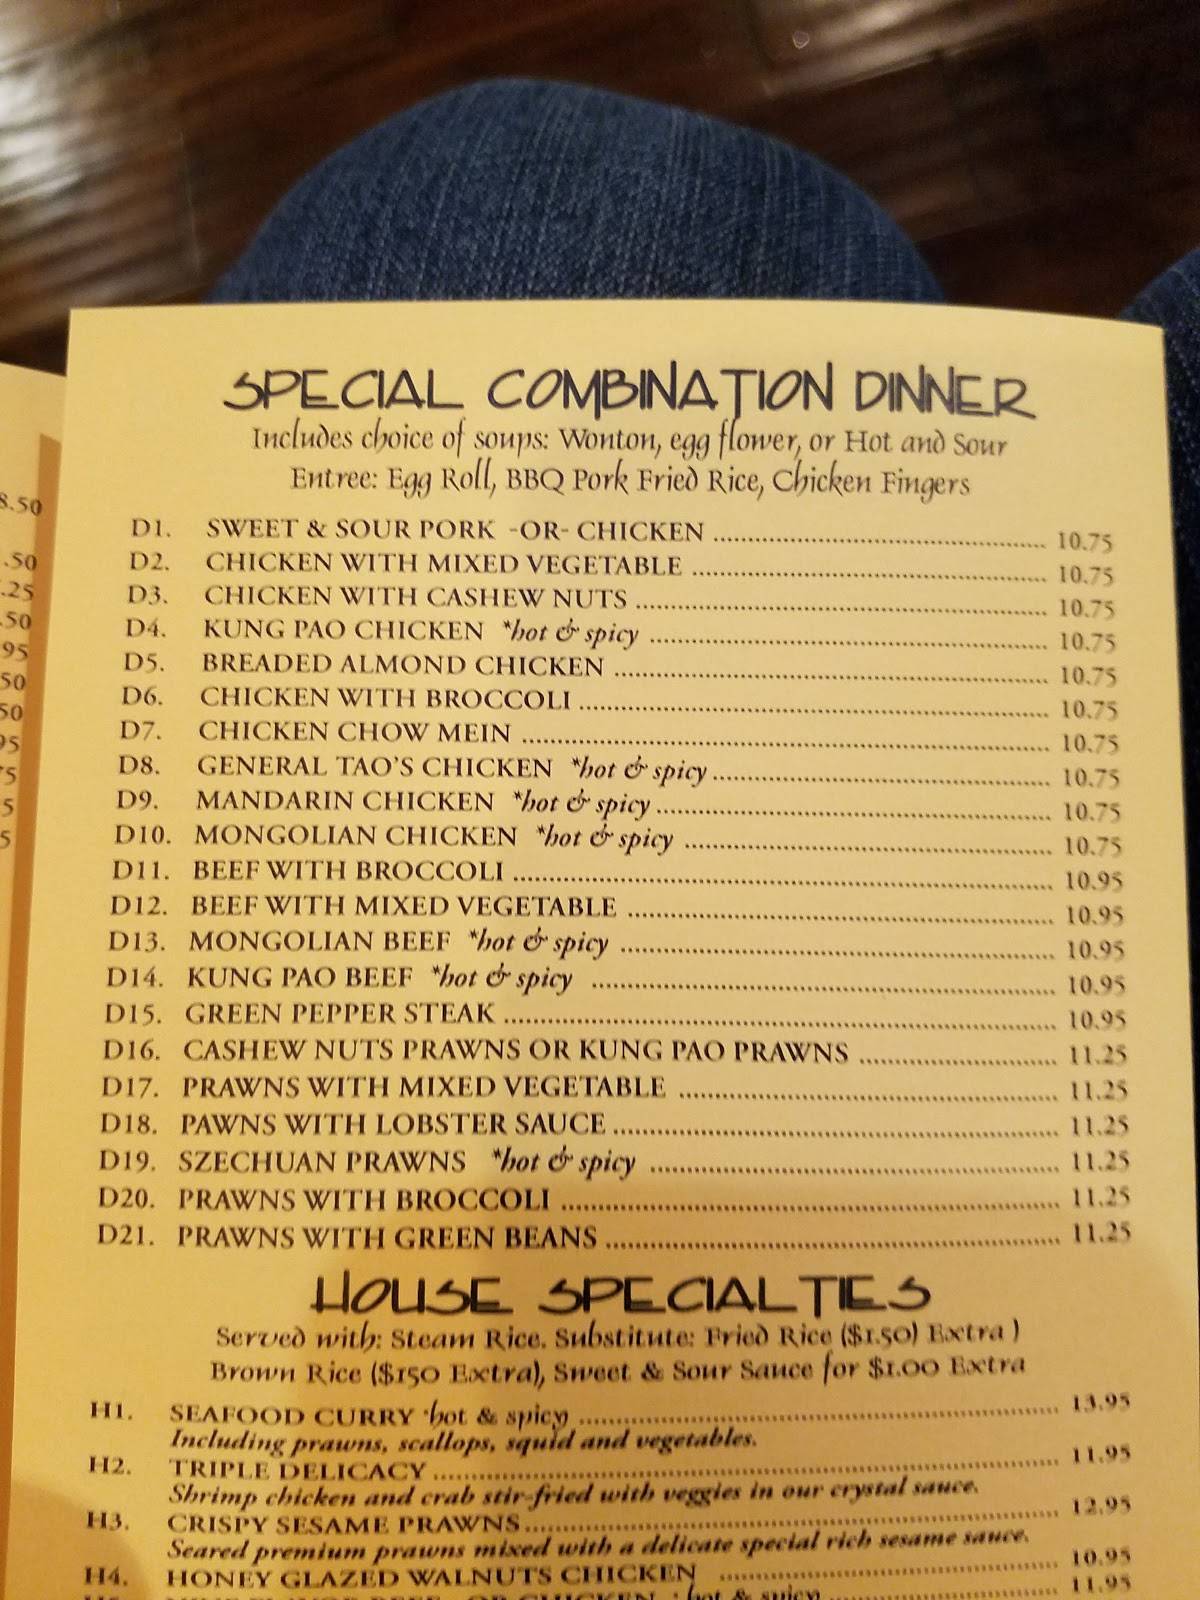 8.50
.50
.25
.50
95
50
50
95
75
5
5
SPECIAL COMBINATION DINNER
Includes choice of soups: Wonton, egg flower, or Hot and Sour
Entree: Egg Roll, BBQ Pork Fried Rice, Chicken Fingers
D1. SWEET & SOUR PORK -OR- CHICKEN 10.75
D2. CHICKEN WITH MIXED VEGETABLE 10.75
D3. CHICKEN WITH CASHEW NUTS 10.75
D4. KUNG PAO CHICKEN *hot & spicy 10.75
D5. BREADED ALMOND CHICKEN 10.75
D6. CHICKEN WITH BROCCOLI 10.75
D7. CHICKEN CHOW MEIN 10.75
D8. GENERAL TAO'S CHICKEN *hot & spicy 10.75
D9. MANDARIN CHICKEN *hot & spicy 10.75
D10. MONGOLIAN CHICKEN *hot & spicy 10.75
D11. BEEF WITH BROCCOLI 10.95
D12. BEEF WITH MIXED VEGETABLE 10.95
D13. MONGOLIAN BEEF *hot & spicy 10.95
D14. KUNG PAO BEEF *hot & spicy 10.95
D15. GREEN PEPPER STEAK 10.95
D16. CASHEW NUTS PRAWNS OR KUNG PAO PRAWNS 11.25
D17. PRAWNS WITH MIXED VEGETABLE 11.25
D18. PAWNS WITH LOBSTER SAUCE 11.25
D19. SZECHUAN PRAWNS *hot & spicy 11.25
D20. PRAWNS WITH BROCCOLI 11.25
D21. PRAWNS WITH GREEN BEANS 11.25
HOUSE SPECIALTIES
Served with: Steam Rice. Substitute: Fried Rice ($1.50) Extra )
Brown Rice ($150 Extra), Sweet & Sour Sauce for $1.00 Extra
H1. SEAFOOD CURRY *hot & spicy 13.95
Including prawns, scallops, squid and vegetables.
H2. TRIPLE DELICACY 11.95
Shrimp chicken and crab stir-fried with veggies in our crystal sauce.
H3. CRISPY SESAME PRAWNS 12.95
Seared premium prawns mixed with a delicate special rich sesame sauce.
H4. HONEY GLAZED WALNUTS CHICKEN 10.95
OR CHICKEN *hot & spicy 11.95